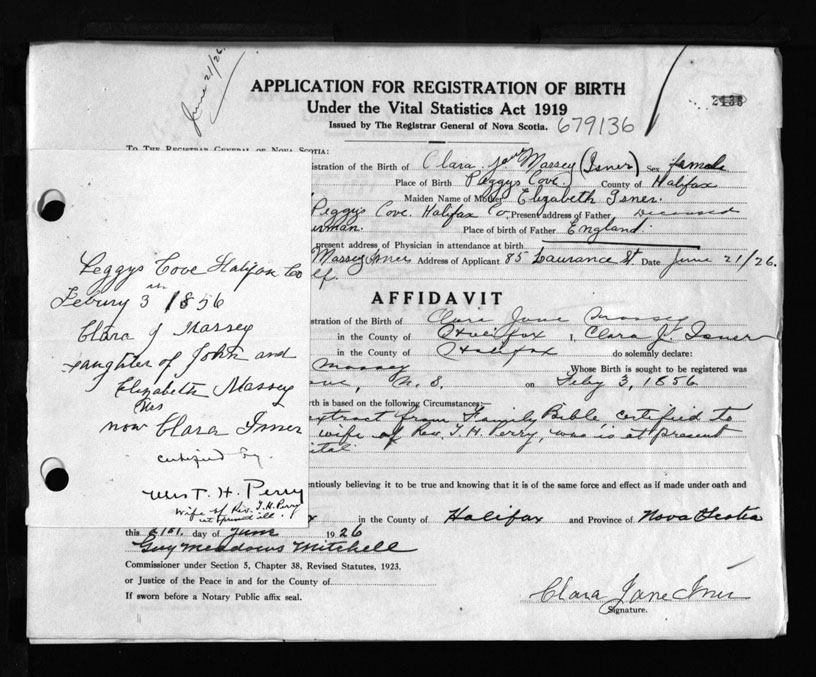 June 21/26.
APPLICATION FOR REGISTRATION OF BIRTH
Under the Vital Statistics Act 1919
Issued by The Registrar General of Nova Scotia. 679136
2135
To The Registrar General of Nova Scotia:
istration of the Birth of Clara Jane Massey (Isner) Sex female
Place of Birth Peggys Cove. County of Halifax
Maiden Name of Mother Elizabeth Isner.
Peggys Cove. Halifax Co. Present address of Father Deceased
erman. Place of birth of Father England.
present address of Physician in attendance at birth
Massey Isner Address of Applicant 85 Laurance St. Date June 21/26.
lf
AFFIDAVIT
istration of the Birth of Clara Jane Massey
in the County of Halifax I, Clara J. Isner
in the County of Halifax do solemnly declare:
Massey Whose Birth is sought to be registered was
ove, N. S. on Feby 3, 1856
rth is based on the following Circumstances:—
extract from Family Bible certified to
wife of Rev. T. H. Perry, who is at present
ital
entiously believing it to be true and knowing that it is of the same force and effect as if made under oath and
x in the County of Halifax and Province of Nova Scotia
this 21st. day of June 1926
Guy Meadows Mitchell
Commissioner under Section 5, Chapter 38, Revised Statutes, 1923.
or Justice of the Peace in and for the County of
If sworn before a Notary Public affix seal.
Clara Jane Isner
Signature.
Peggys Cove Halifax Co
in
Febury 3 1856
Clara J Massey
Daughter of John and
Elizabeth Massey
Mrs
now Clara Isner
certified by.
Mrs T. H. Perry
Wife of Rev. T. H. Perry
at present ill.